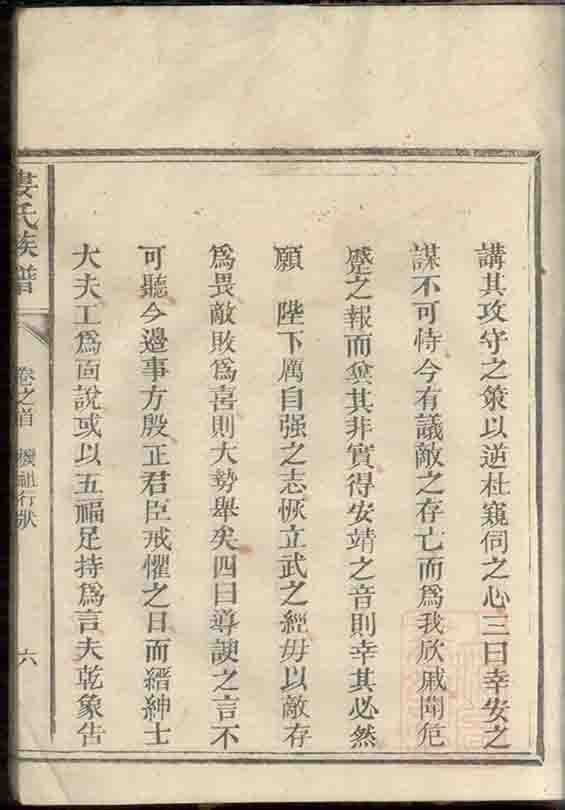 講其攻守之策以逆杜窺伺之心三曰幸安之
謀不可恃今有議敵之存亡而爲我欣戚聞危
蹙之報而冀其非實得安靖之音則幸其必然
願 陛下厲自强之志恢立武之經毋以敵存
爲畏敵敗爲喜則大勢舉矣四曰導諛之言不
可聽今邊事方殷正君臣戒懼之日而縉紳士
大夫工爲面說或以五福足持爲言夫乾象告
婁氏族譜
卷之首
祖行狀
六